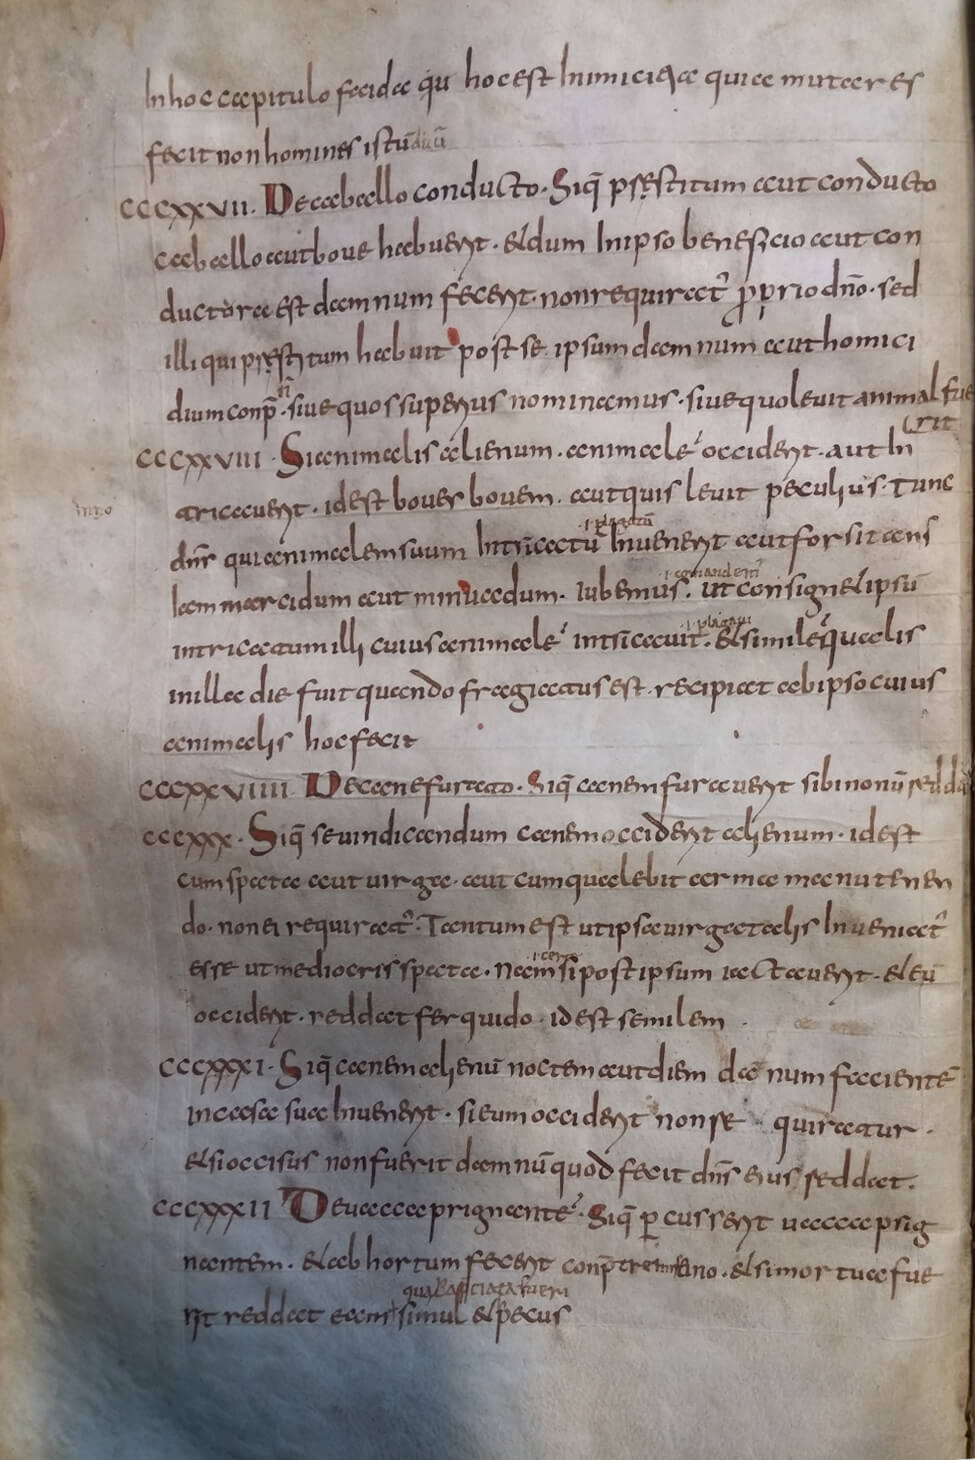 In hoc capitulo faida qu hoc est Inimicitia quia muta res
fecit non homines istū
CCCXXVII. De caballo conducto. Siq̄ p̄stitum aut conducto
caballo aut boue habuerit. et dum In ipso beneficio aut con
ductura est damnum fecerit. non requirat̉ proprio dn̄o. sed
illi qui p̄stitum habuit post se ipsum damnum aut homici
dium conp̄. siue quos superius nominamus. siue quoleuit animal fue
rit
CCCXXVIII. Si animalis alienum. animale̾ occiderit. aut In
tricauerit. id est bouer bouem. aut quis leuit peculius. tunc
dn̄s qui animalem suum Intricatū Inuenerit aut forsitans
lam marcidum aut minuadum. Iubemus. ut consignet ipsū
intricatum illi cuius animale̾ intricauit. et simile qualis
in illa die fuit quando fragiatus est. recipiat ab ipso cuius
animalis hoc fecit
CCCXXVIIII De cane furtato. Siq̄ canem furauerit sibi nonū redda
CCCXXX. Siq̄ se uindicandum canem occiderit alienum. id est
cum spata aut uirga. aut cum qualebit arma manu tenen
do. non ei requirat̉. Tantum est ut ipsa uirga talis Inueniat̉
esse ut mediocris spata. Nam si post ipsum iactauerit. et eū
occiderit. reddat ferquido. id est semilem
CCCXXXI. Siq̄ canem alienū noctem aut diem dānum faciente
in casa sua Inuenerit. si eum occiderit non re quiratur.
et si occisus non fuerit damnū quod fecit dn̄s eius reddat.
CCCXXXII De uacca prignante̾. Siq̄ percusserit uacca prig
nantem. et abhortum fecerit conp̄ tremisse uno. et si mortua fue
rit reddat eam simul et pecus